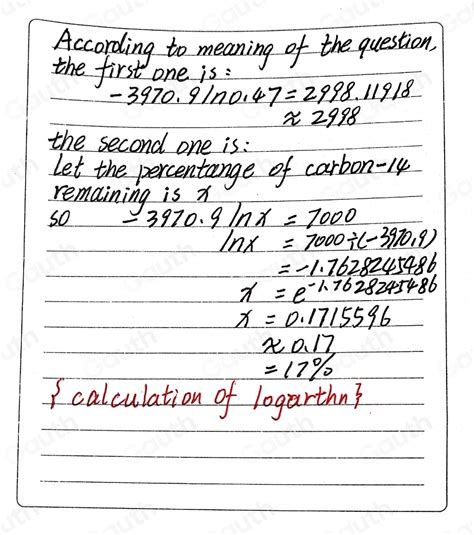 According to meaning of the question,
the first one is:
-3970.9 ln0.47 = 2998.11918
≈ 2998
the second one is:
Let the percentange of carbon-14
remaining is x
so -3970.9 ln x = 7000
ln x = 7000÷(-3970.9)
= -1.7628245486
x = e^-1.7628245486
x = 0.1715596
≈ 0.17
= 17%
{ calculation of logarthn }